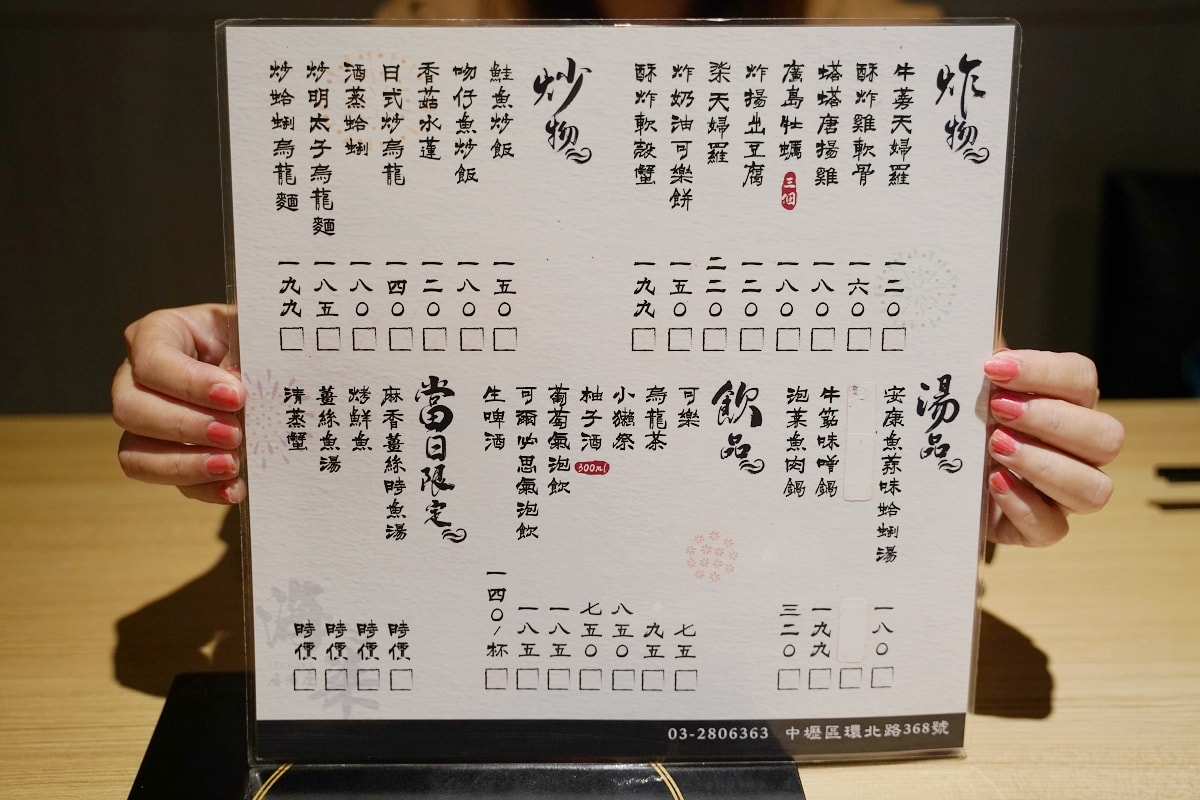 炸物
牛蒡天婦羅
一二〇
酥炸雞軟骨
一六〇
塔塔唐揚雞
一八〇
廣島牡蠣
三個
一八〇
炸揚出豆腐
一二〇
柒天婦羅
二二〇
炸奶油可樂餅
一五〇
酥炸軟殼蟹
一九九
炒物
鮭魚炒飯
一五〇
吻仔魚炒飯
一八〇
香菇水蓮
一二〇
日式炒烏龍
一四〇
酒蒸蛤蜊
一八〇
炒明太子烏龍麵
一八五
炒蛤蜊烏龍麵
一九九
湯品
安康魚蒜味蛤蜊湯
一八〇
牛筋味噌鍋
一九九
泡菜魚肉鍋
三二〇
飲品
可樂
七五
烏龍茶
九五
小獺祭
八五〇
柚子酒
300ml
七五〇
葡萄氣泡飲
一八五
可爾必思氣泡飲
一八五
生啤酒
一四〇/杯
當日限定
麻香薑絲時魚湯
時價
烤鮮魚
時價
薑絲魚湯
時價
清蒸蟹
時價
03-2806363 中壢區環北路368號